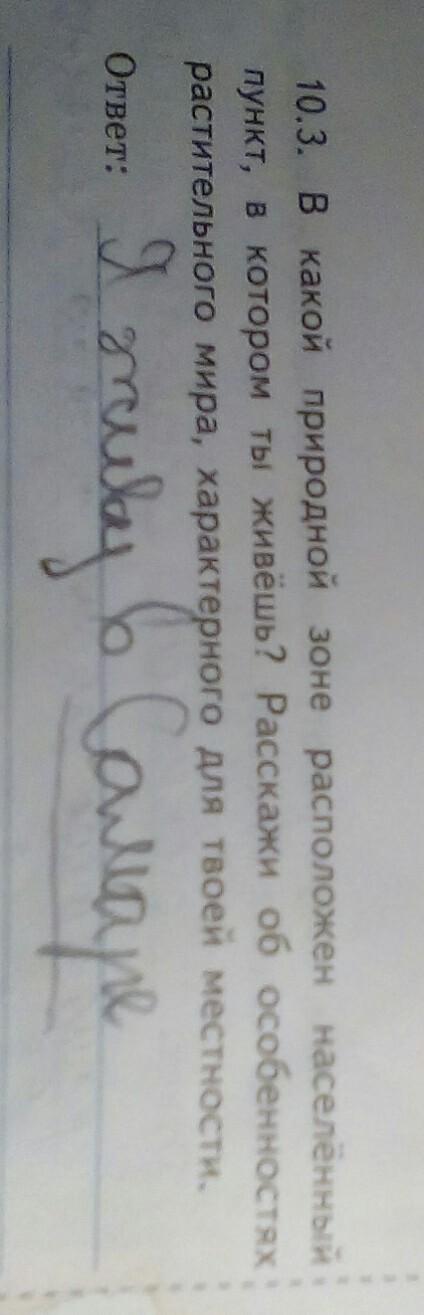 10.3. В какой природной зоне расположен населённый
пункт, в котором ты живёшь? Расскажи об особенностях
растительного мира, характерного для твоей местности.
Ответ: Я живу в Самаре